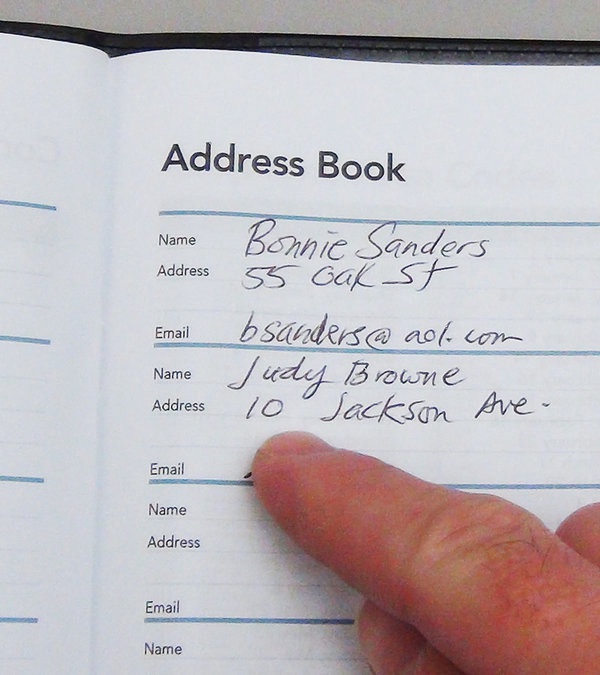 Address Book
Name Bonnie Sanders
Address 55 Oak St
Email bsanders@aol.com
Name Judy Browne
Address 10 Jackson Ave.
Email
Name
Address
Email
Name